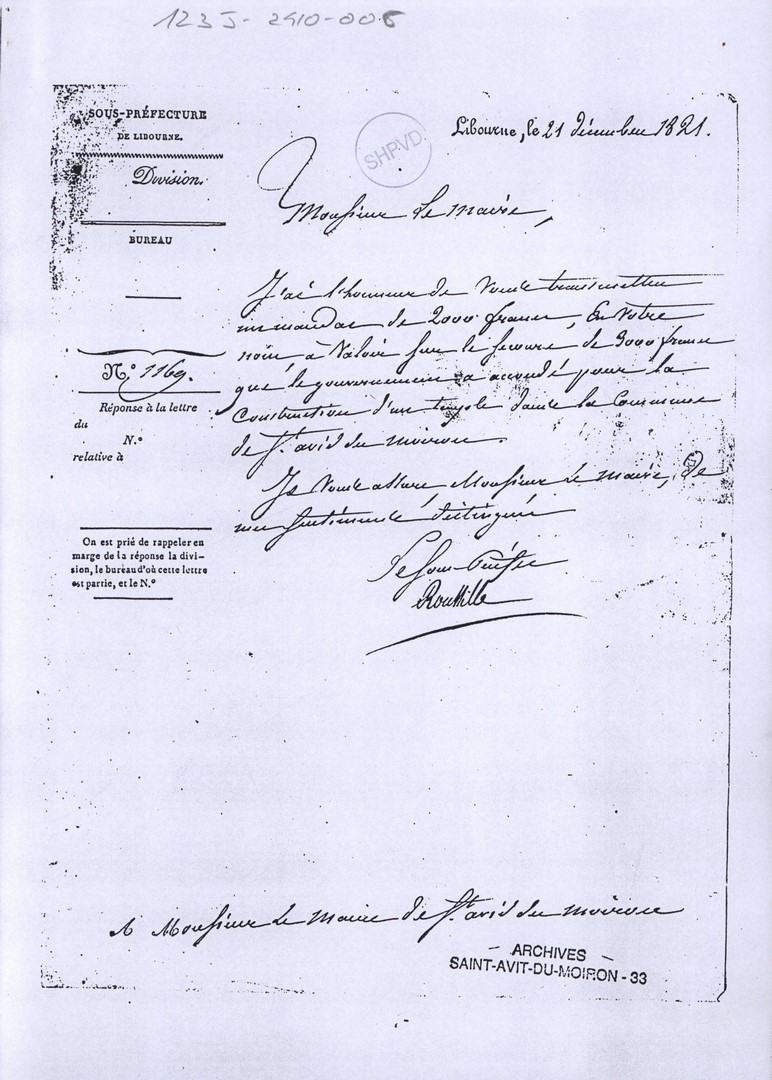 123 J - 2410-006
SOUS-PRÉFECTURE
DE LIBOURNE.
Division.
BUREAU
N.° 1169.
Réponse à la lettre
du
N.°
relative à
On est prié de rappeler en
marge de la réponse la divi-
sion, le bureau d'où cette lettre
est partie, et le N.°
SHPVD
Libourne, le 21 décembre 1821.
Monsieur Le Maire,
J'ai l'honneur de Vous transmettre
un mandat de 2000 francs, En Votre
nom à Valoir sur le secours de 3000 francs
que le gouvernement a accordé pour la
Construction d'un temple dans la Commune
de St. avid du moiron.
Je Vous assure Monsieur Le Maire, de
mes sentiments distingués
Le Sous-Préfet
A Monsieur Le Maire de St. avid du moiron
ARCHIVES
SAINT-AVIT-DU-MOIRON - 33